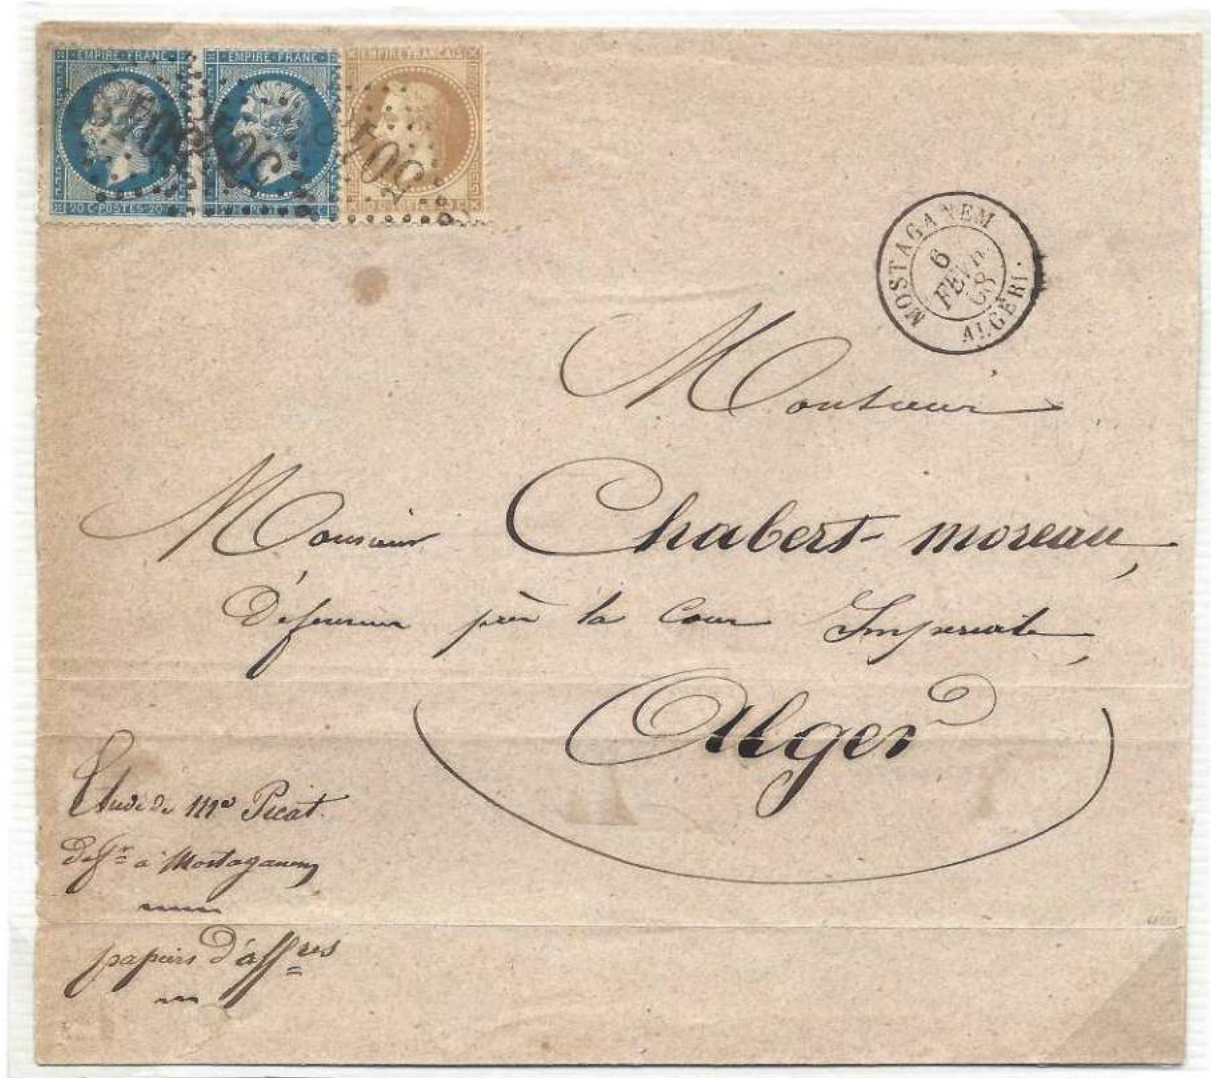 EMPIRE FRANC EMPIRE FRANC EMPIRE FRANÇAIS
20 C POSTES 20
MOSTAGANEM
6
FEVR
68
ALGERI
Monsieur
Monsieur Chabert-moreau,
Défenseur près la Cour Impériale,
Alger
Etude de Me Picat.
deffr à Mostaganem
papiers d'affres